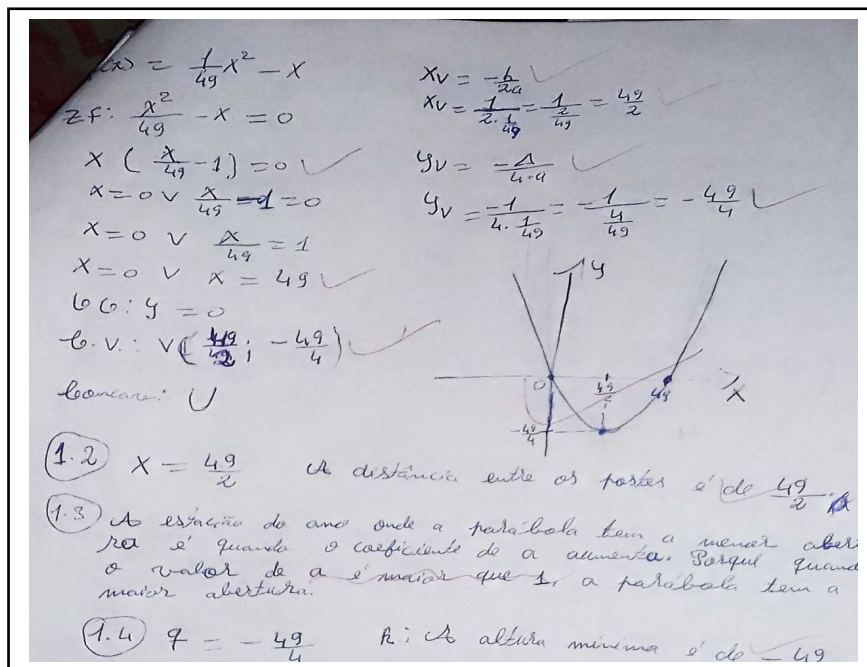 (x) = 1/49 x² - x
ZF: x²/49 - x = 0
x ( x/49 - 1 ) = 0
x = 0 ∨ x/49 - 1 = 0
x = 0 ∨ x/49 = 1
x = 0 ∨ x = 49
y = 0
C.V.: V( 49/2 ; - 49/4 )
∪
Xv = -b/2a
Xv = 1/(2·1/49) = 1/(2/49) = 49/2
Yv = -Δ/4·a
Yv = -1/(4·1/49) = -1/(4/49) = - 49/4
y
0
49/2
49
x
-49/4
1.2 X = 49/2 A distância entre os postes é de 49/2
1.3 A estação do ano onde a parábola tem a menor aber
ra é quando o coeficiente de a aumenta. Porquê quand
o valor de a é maior que 1, a parábola tem a
maior abertura.
1.4 q = - 49/4 R: A altura mínima é de - 49